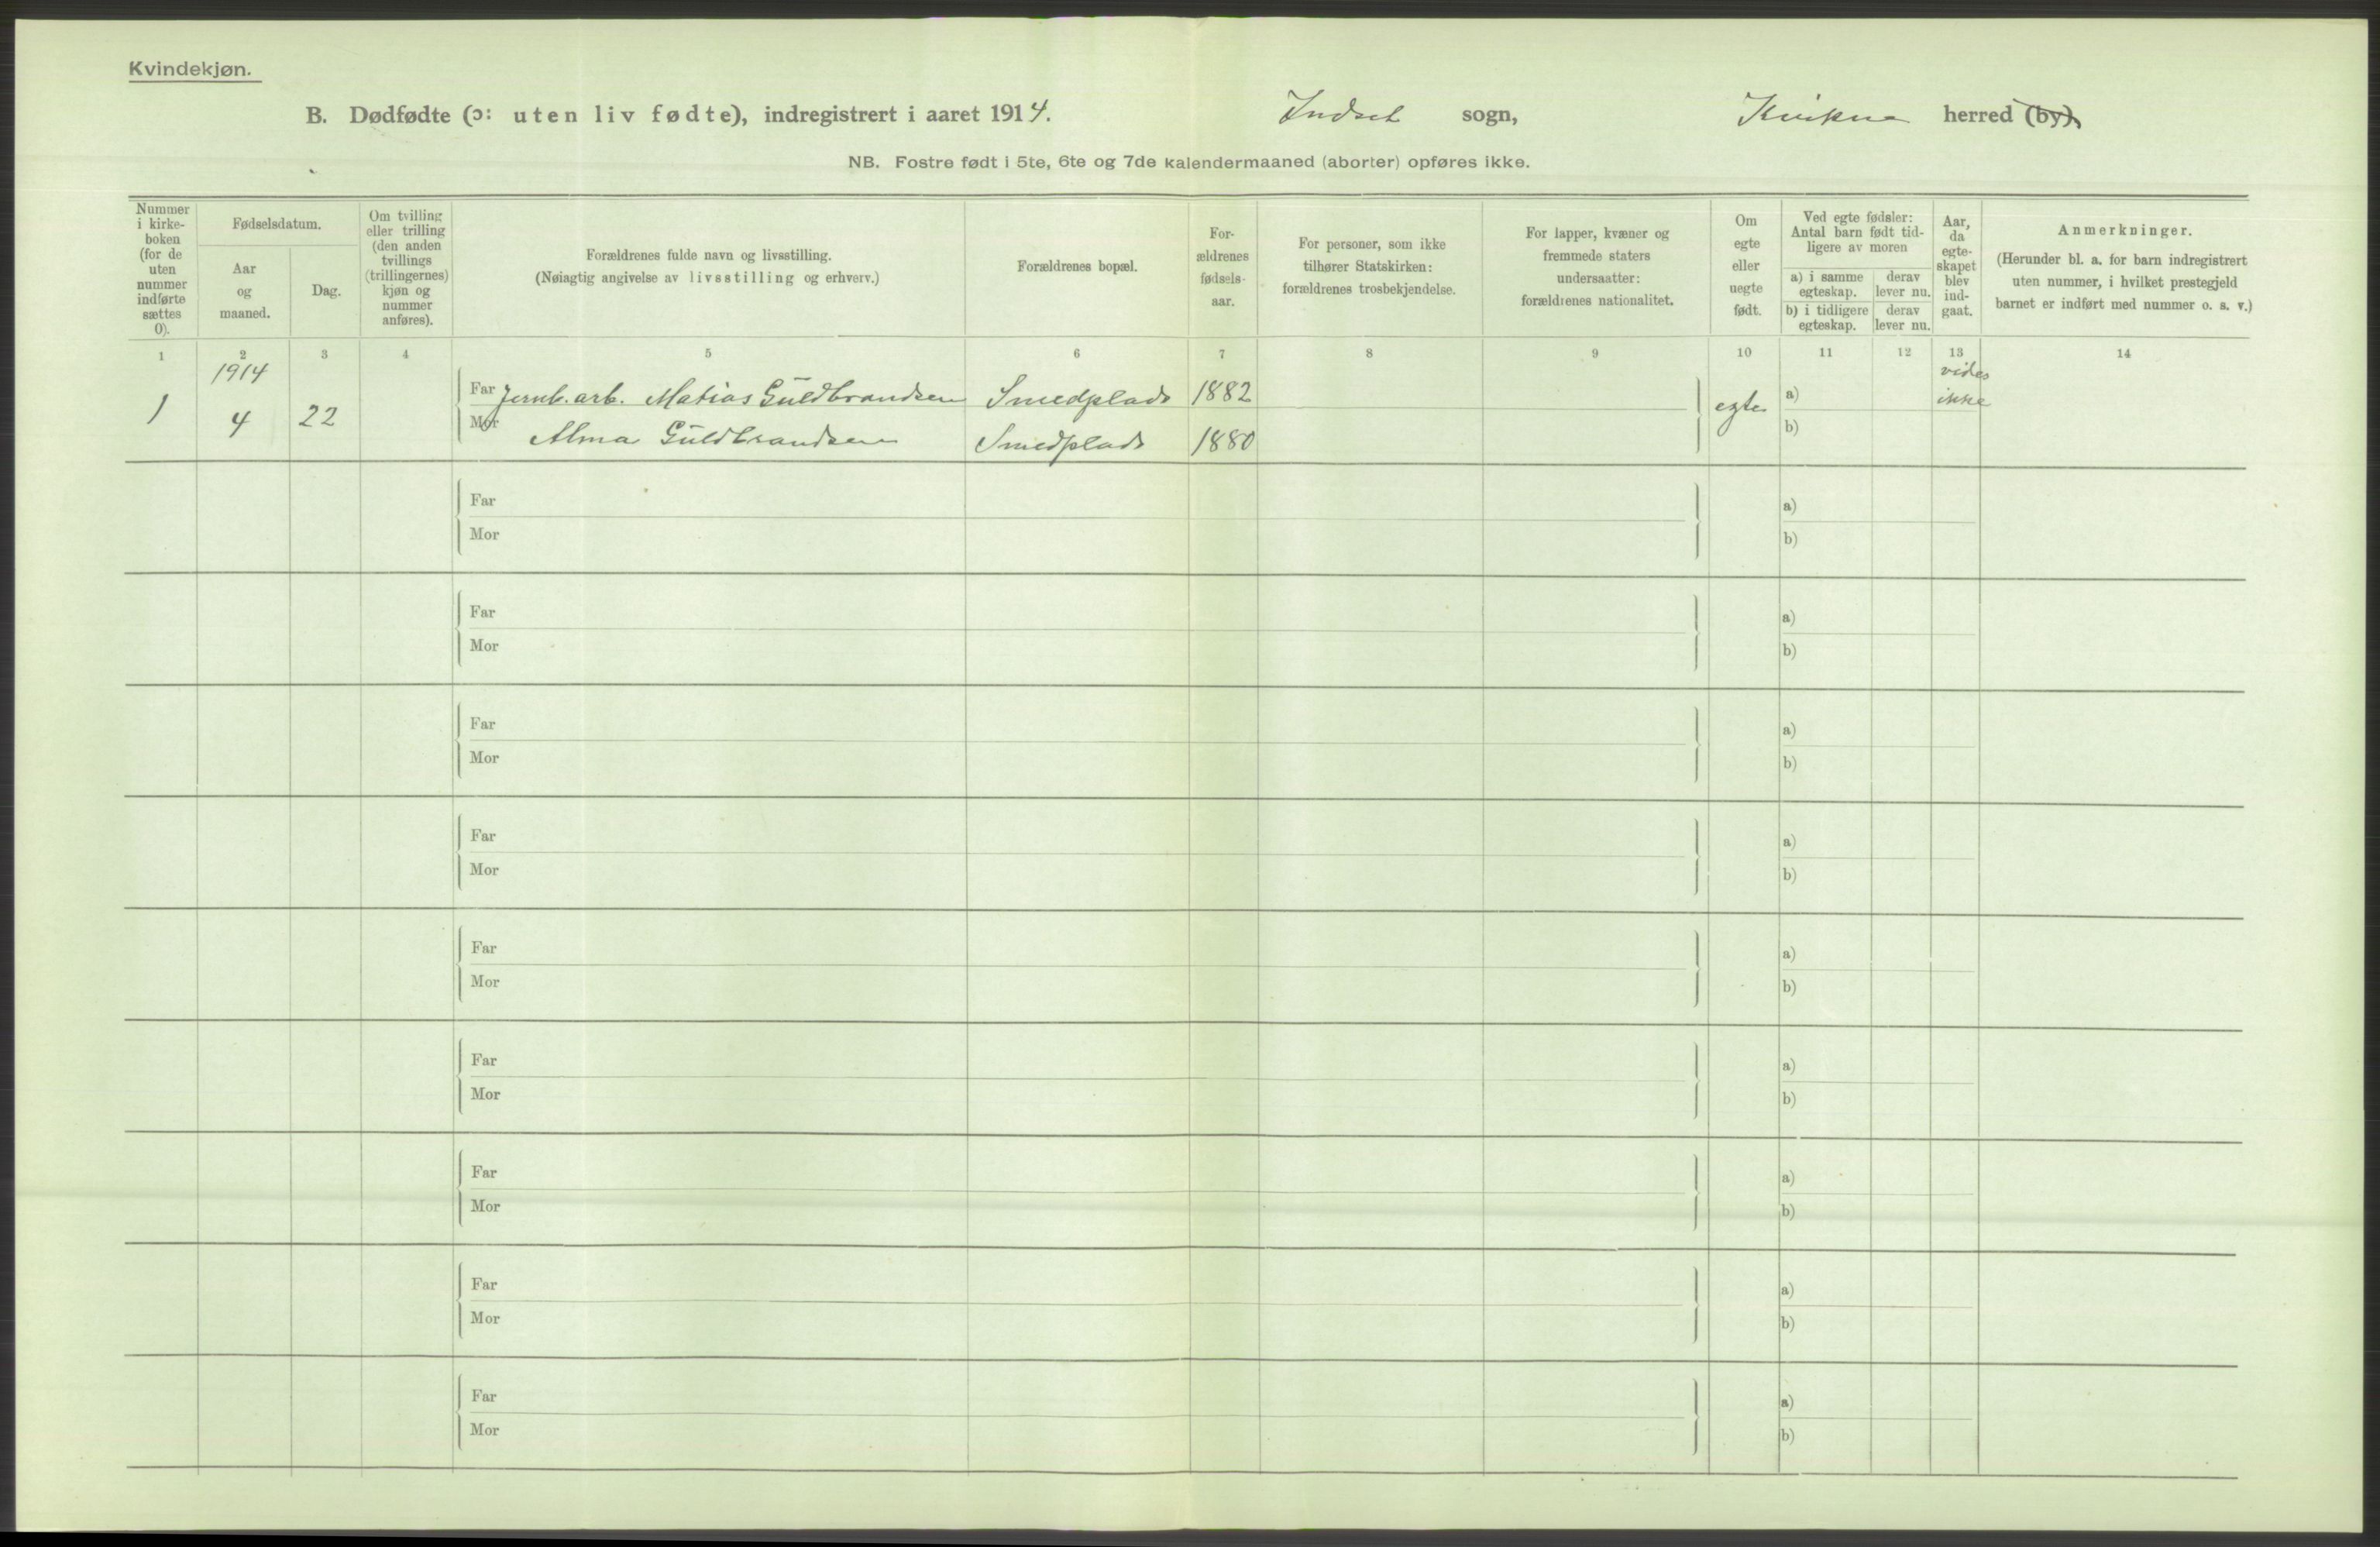 Kvindekjøn.
B. Dødfødte (ɔ: uten liv fødte), indregistrert i aaret 1914. Indset sogn, Kvikne herred (by).
NB. Fostre født i 5te, 6te og 7de kalendermaaned (aborter) opføres ikke.
Nummer
i kirke-
boken
(for de
uten
nummer
indførte
sættes
0).
Fødselsdatum.
Aar
og
maaned.
Dag.
Om tvilling
eller trilling
(den anden
tvillings
(trillingernes)
kjøn og
nummer
anføres).
Forældrenes fulde navn og livsstilling.
(Nøiagtig angivelse av livsstilling og erhverv.)
Forældrenes bopæl.
For-
ældrenes
fødsels-
aar.
For personer, som ikke
tilhører Statskirken:
forældrenes trosbekjendelse.
For lapper, kvæner og
fremmede staters
undersaatter:
forældrenes nationalitet.
Om
egte
eller
uegte
født.
Ved egte fødsler:
Antal barn født tid-
ligere av moren
a) i samme
egteskap.
derav
lever nu.
b) i tidligere
egteskap.
derav
lever nu.
Aar,
da
egte-
skapet
blev
ind-
gaat.
Anmerkninger.
(Herunder bl. a. for barn indregistrert
uten nummer, i hvilket prestegjeld
barnet er indført med nummer o. s. v.)
1 2 3 4 5 6 7 8 9 10 11 12 13 14
1914 vides
Far Jernb. arb. Matias Güldbrandsen Smedplads 1882 a) ikke
1 4 22 egte
Mor Alma Güldbrandsen Smedplads 1880 b)
Far a)
Mor b)
Far a)
Mor b)
Far a)
Mor b)
Far a)
Mor b)
Far a)
Mor b)
Far a)
Mor b)
Far a)
Mor b)
Far a)
Mor b)
Far a)
Mor b)